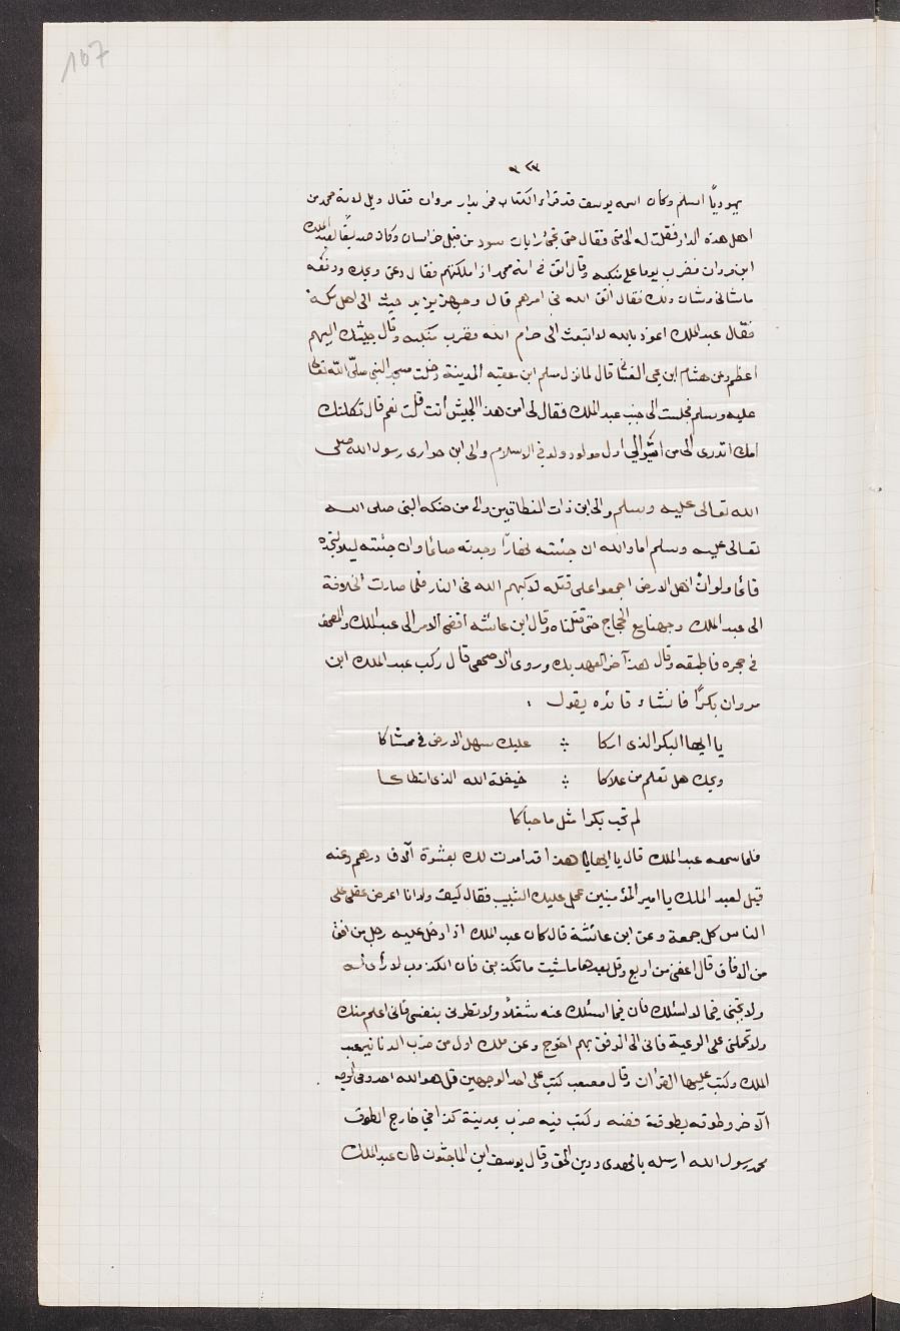 107
٣٢٣
يهوديًّا اسلم وكان اسمه يوسف قد قراء الكتاب فمر بدار مروان فقال ويل لامة محمد من
اهل هذه الدار فقلت له الى متى فقال حتى تجئ رايات سود من قبل خراسان وكان صديقًا لعبد الملك
ابن مروان فضرب يوما على منكبه وقال اتق فى امة محمد اذا ملكتهم فقال دعنى ويحك ودفعه
ما شانى وشان ذلك فقال اتق الله فى امرهم قال وجهز يزيد جيش الى اهل مكة
فقال عبد الملك اعوذ بالله لا تبعث الى حرام الله فضرب منكبه وقال جيشك اليهم
اعظم وعن هشام ابن يحى الغسانى قال لما نزل مسلم ابن عقبه المدينة دخلت مسجد النبى صلى الله تعالى
عليه وسلم فجلست الى جنب عبد الملك فقال لى امن هذا الجيش أنت قلت نعم قال ثكلتك
امك اتدرى الى من الى اول مولود ولد فى الاسلام والى ابن حوارى رسول الله صلى
الله تعالى عليه وسلم والى ابن ذات النطاقين والى من حنكه النبى صلى الله
تعالى عليه وسلم اما والله ان جئته نهارًا وجدته صائما وان جئته ليلا لتجده
قائما ولو ان اهل الارض اجمعوا على قتله لاكبهم الله فى النار فلما صارت الخلافة
الى عبد الملك وجهنا مع الحجاج حتى قتلناه وقال ابن عائشه أفضى الامر الى عبد الملك والمصحف
فى حجره فاطبقه وقال هذا آخر العهد بك وروى الاصمعى قال ركب عبد الملك ابن
مروان بكرًا فانشاء قائده يقول :
يا ايها البكر الذى اراكا ؞ عليك سهل الارض فى ممشاكا
ويحك هل تعلم من علاكا ؞ خيفة الله الذى امتطاكا
لم تحب بكرا مثل ما حباكا
فلما سمعه عبد الملك قال يا ايها هذا قد امرت لك بعشرة آلاف درهم وعنه
قيل لعبد الملك يا امير المؤمنين عجل عليك الشيب فقال كيف ولا وانا اعرض عقلى على
الناس كل جمعة وعن ابن عائشة قال كان عبد الملك اذا دخل عليه رجل من افق
من الافاق قال اعفنى من اربع وقل بعدها ما شيت ما تكذبنى فان الكذوب لا رأى له
ولا تجبنى فيما لا اسئلك فان فيما اسئلك عنه شغلاً ولا تطرنى بنفسى فانى اعلم منك
ولا تحملنى على الرعية فانى الى الرفق بهم احوج وعن ملك اول من ضرب الدنانير عبد
الملك وكتب عليها القرأن وقال مصعب كتب على احد الوجهين قل هو الله احد وفى الوجه
الآخر وطوقه بطوقة فضه وكتب فيه ضرب بمدينة كذا فى خارج الطوق
محمد رسول الله ارسله بالهدى ودين الحق وقال يوسف ابن الماجشون كان عبد الملك